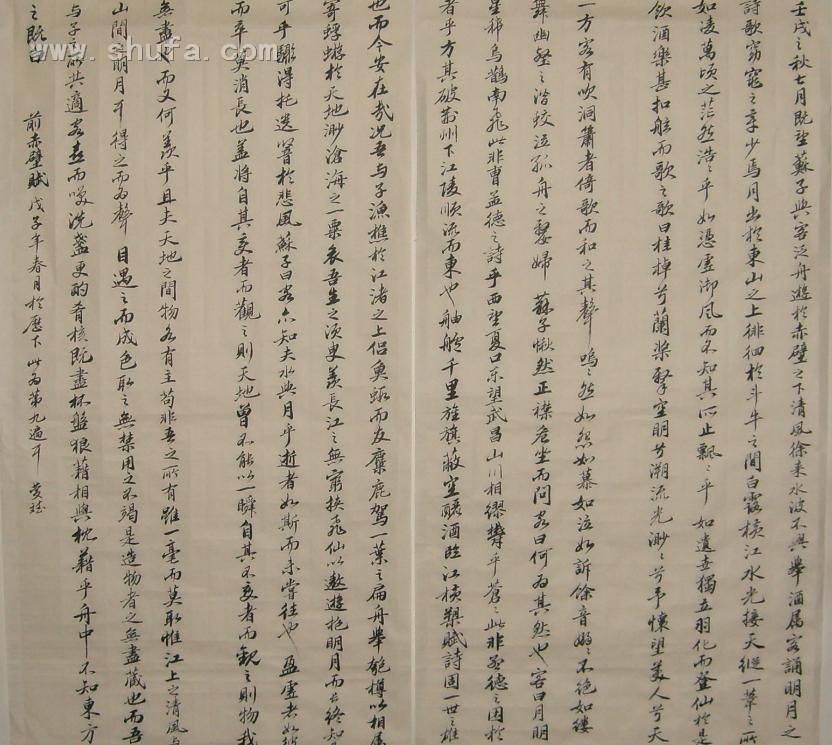 壬戌之秋七月既望蘇子與客泛舟遊於赤壁之下清風徐來水波不興舉酒属客誦明月之
詩歌窈窕之章少焉月出於東山之上徘徊於斗牛之間白露橫江水光接天縱一葦之所
如凌萬頃之茫然浩浩乎如憑虛御风而不知其所止飄飄乎如遺世獨立羽化而登仙於是
飲酒樂甚扣舷而歌之歌曰桂棹兮蘭槳擊空明兮溯流光渺渺兮予懷望美人兮天
一方客有吹洞簫者倚歌而和之其聲嗚嗚然如怨如慕如泣如訴餘音嫋嫋不絕如縷
舞幽壑之潛蛟泣孤舟之嫠婦蘇子愀然正襟危坐而問客曰何為其然也客曰月明
星稀烏鵲南飛此非曹孟德之詩乎西望夏口东望武昌山川相繆鬱乎蒼蒼此非孟德之困於
者乎方其破荊州下江陵順流而東也舳艫千里旌旗蔽空釃酒臨江橫槊賦詩固一世之雄
也而今安在哉况吾與子漁樵於江渚之上侶魚蝦而友麋鹿駕一葉之扁舟舉匏樽以相属
寄蜉蝣於天地渺滄海之一粟哀吾生之須臾羨長江之無窮挾飛仙以遨遊抱明月而長終知
可乎驟得托遺響於悲風蘇子曰客亦知夫水與月乎逝者如斯而未嘗往也盈虛者如彼
而卒莫消長也蓋將自其变者而觀之則天地曾不能以一瞬自其不变者而觀之則物我
無盡也而又何羨乎且夫天地之間物各有主苟非吾之所有雖一毫而莫取惟江上之清風与
山間之明月耳得之而為聲目遇之而成色取之無禁用之不竭是造物者之無盡藏也而吾
与子之所共適客喜而笑洗盞更酌肴核既盡杯盤狼藉相與枕藉乎舟中不知東方
之既白
前赤壁賦戊子年春月於歷下此為第九遍耳
www.shufa.com